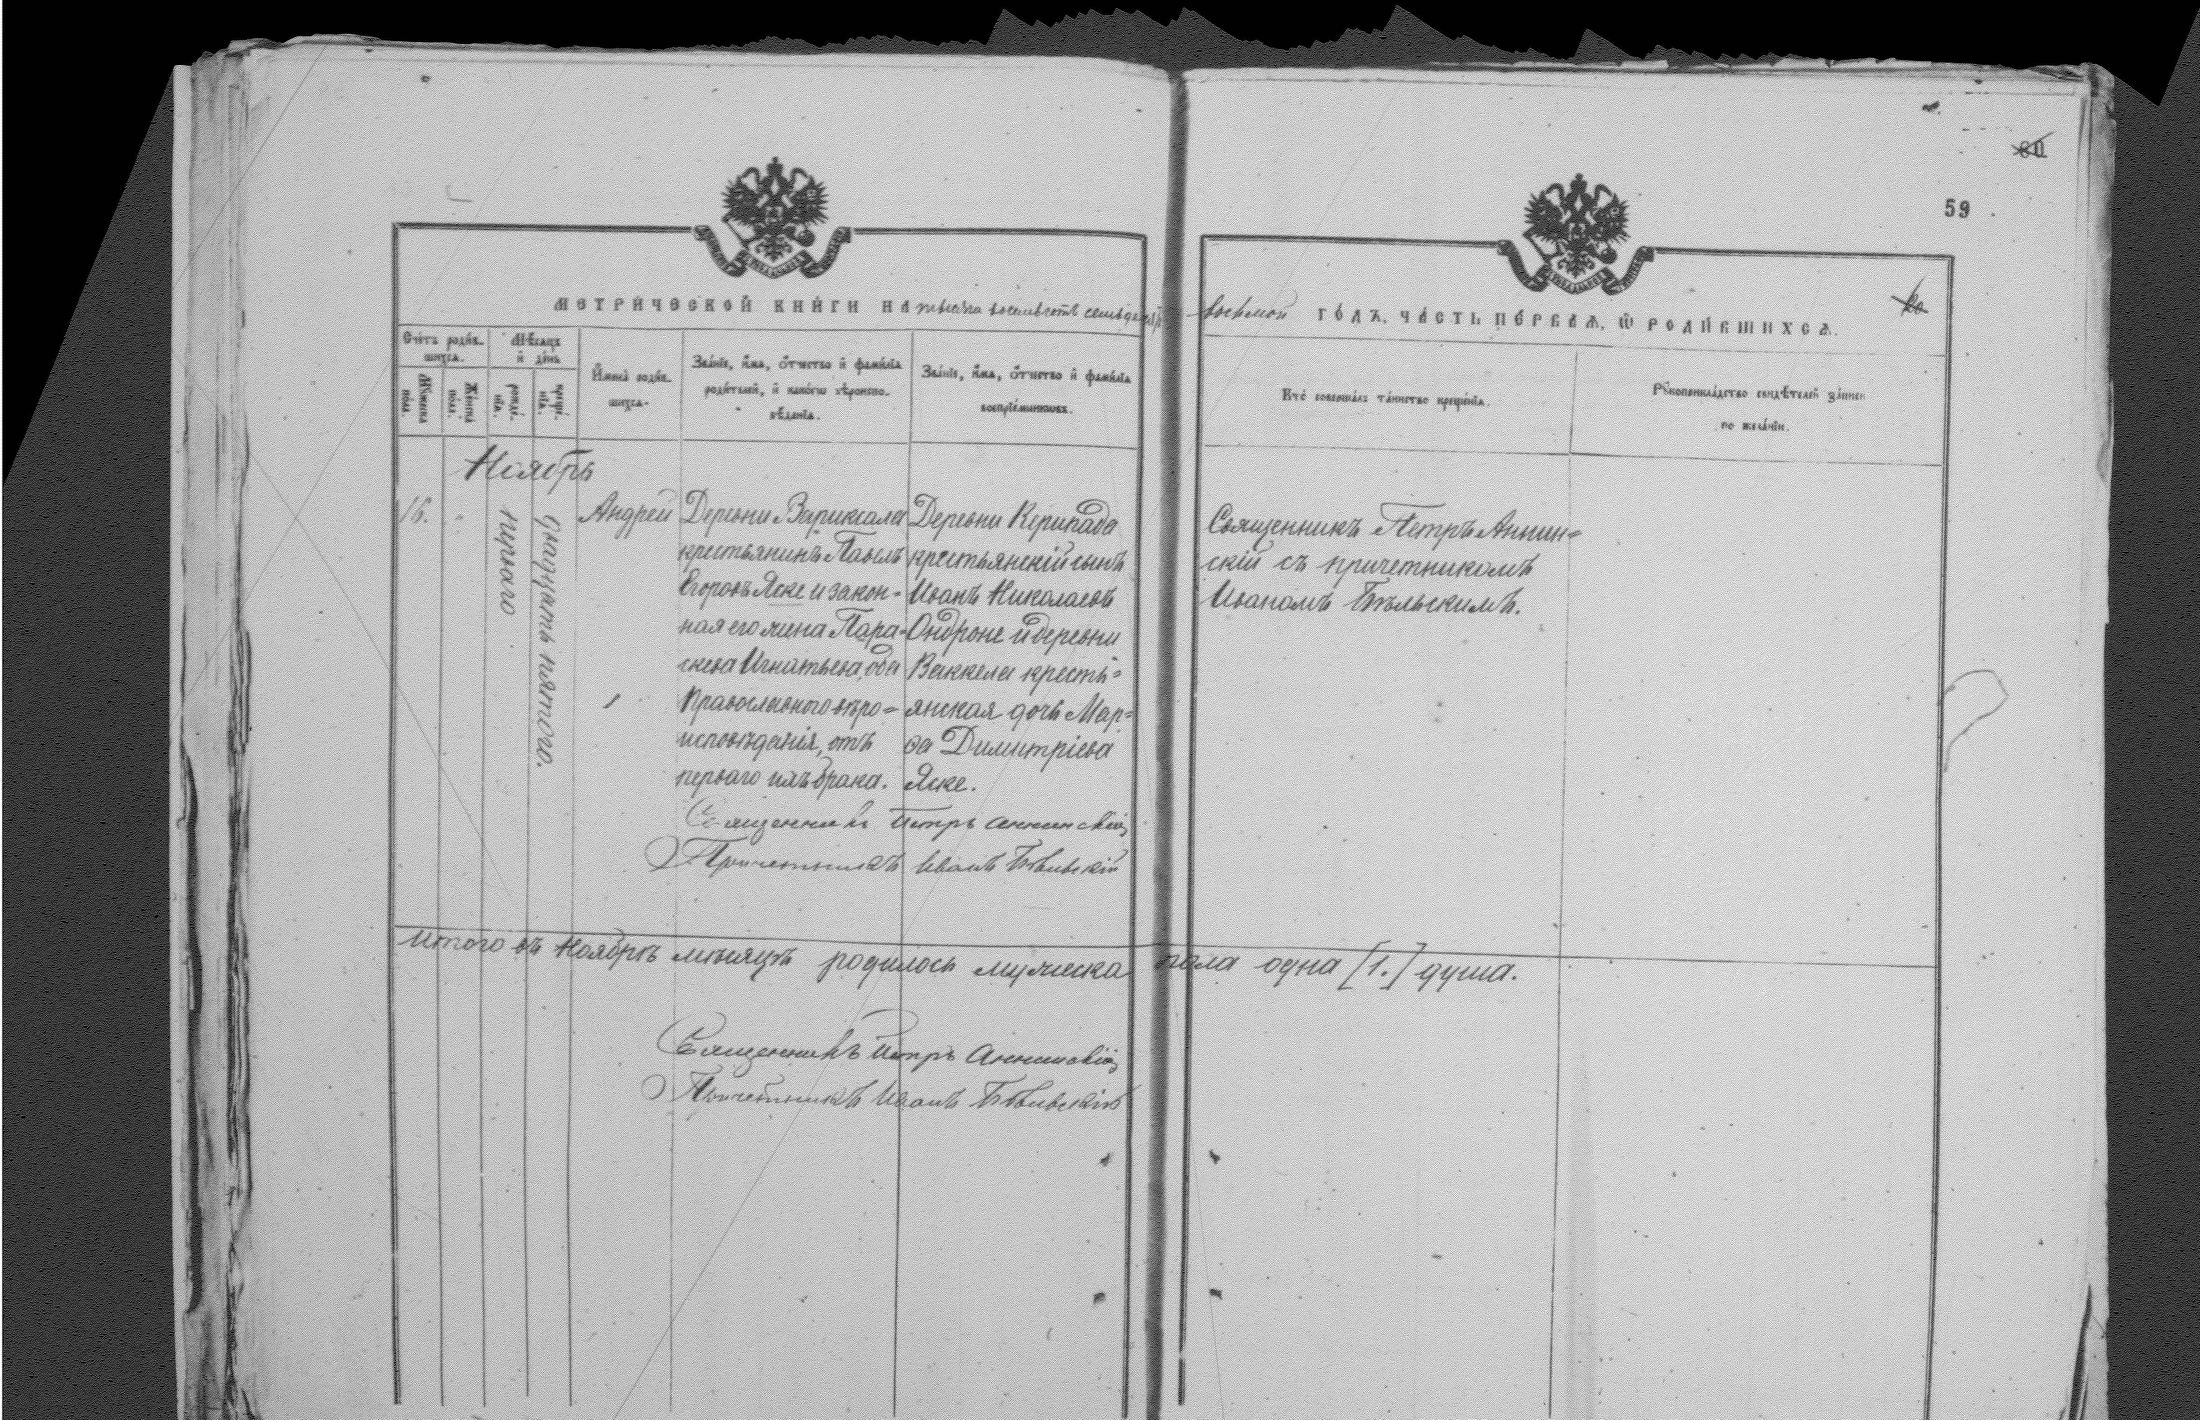 80
59
МЕТРИЧЕСКОЙ КНИГИ НА тысяча восемьсотъ семьдесятъ восьмой ГОДЪ, ЧАСТЬ ПЕРВАЯ, Ѿ РОДИВШИХСЯ.
Счетъ родив-
шихся.
Мѣсяцъ
и день
Мужеска
пола.
Женска
пола.
рожде-
нія.
креще-
нія.
Имена родив-
шихся.
Званіе, имя, отчество и фамилія
родителей, и какого вѣроиспо-
вѣданія.
Званіе, имя, отчество и фамилія
воспріемниковъ.
Кто совершалъ таинство крещенія.
Рукоприкладство свидѣтелей записи
по желанію.
Ноябрь
16.
перваго
двадцать пятого.
Андрей
Деревни Вариксала
крестьянинъ Павелъ
Егоровъ Яске и закон-
ная его жена Пара-
скева Игнатьева, оба
Православного вѣро-
исповѣданія, отъ
перваго ихъ брака.
Деревни Керипада
крестьянскій сынъ
Иванъ Николаевъ
Ондроне и деревни
Ваккела кресть-
янская дочь Мар-
ѳа Димитріева
Яске.
Священникъ Петръ Аннин-
скій съ причетникомъ
Иваномъ Бѣльскимъ.
Священникъ Петръ Аннинскій
Причетникъ Иванъ Бѣльскій
Итого въ Ноябрѣ мѣсяцѣ родилось мужеска пола одна [1.] душа.
Священникъ Петръ Аннинскій
Причетникъ Иванъ Бѣльскій